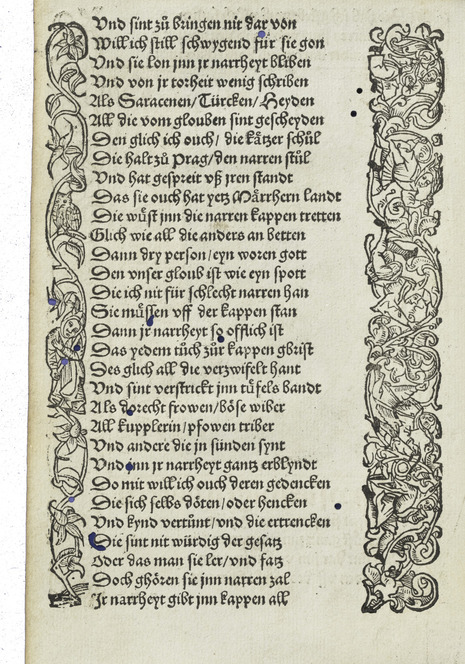 Vnd sint zů bringen nit dar von
Will ich still schwygend für sie gon
Vnd sie lon jnn jr narrheyt bliben
Vnd von jr torheit wenig schriben
Als Saracenen/ Türcken/ Heyden
All die vom glouben sint gescheyden
Den glich ich ouch/ die kätzer schůl
Die halt zů Prag/ den narren stůl
Vnd hat gespreit vß jren standt
Das sie ouch hat yetz Märrhern landt
Die wůst jnn die narren kappen tretten
Glich wie all die anders an betten
Dann dry person/ eyn woren gott
Den vnser gloub ist wie eyn spott
Die ich nit für schlecht narren han
Sie müssen vff der kappen stan
Dann jr narrheyt so offlich ist
Das yedem tůch zůr kappen gbrist
Des glich all die verzwifelt hant
Vnd sint verstrickt jnn tüfels bandt
Als dorecht frowen/ böse wiber
All kupplerin/ pfowen triber
Vnd andere die jn sünden synt
Vnd jnn jr narrheyt gantz erblyndt
Do mit will ich ouch deren gedencken
Die sich selbs döten/ oder hencken
Vnd kynd vertůnt/ vnd die ertrencken
Die sint nit würdig der gesatz
Oder das man sie ler/ vnd fatz
Doch ghören sie jnn narren zal
Jr narrheyt gibt jnn kappen all